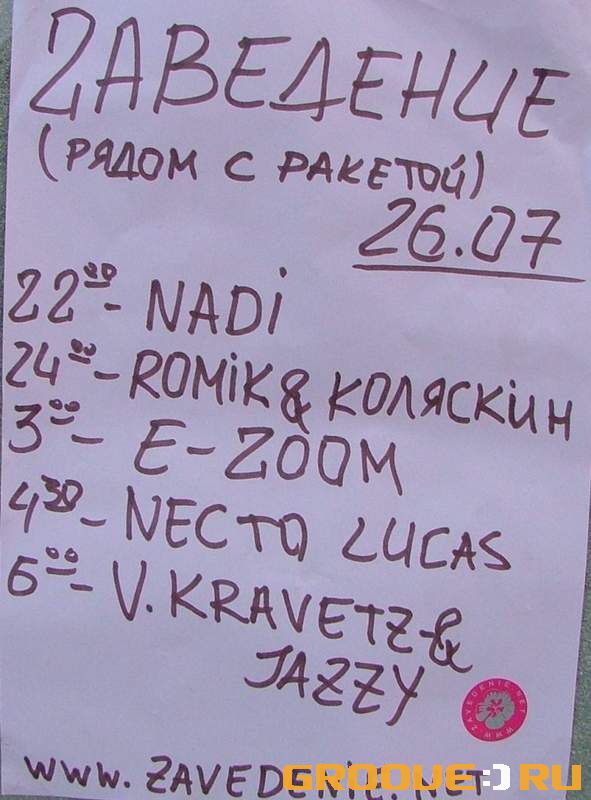 ZАВЕДЕНИЕ
(РЯДОМ С РАКЕТОЙ)
26.07
22⁰⁰- NADi
24⁰⁰- ROMiK & КОЛЯСКИН
3⁰⁰- E-ZOOM
4³⁰- NECTO LUCAS
6⁰⁰- V. KRAVETZ &
JAZZY
WWW.ZAVEDENIE.NET
www.ZAVEDENiE.NET
GROOVE:)RU